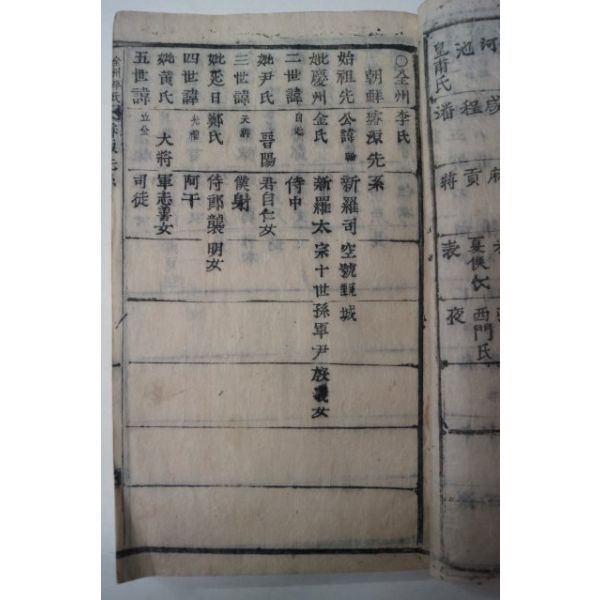 河
池 程 貢 夏侯氏 西門氏
皇甫氏 潘 蔣 表 夜
○全州李氏
朝鮮璿源先系
始祖先公諱翰 新羅司空號甄城
妣慶州金氏 新羅太宗十世孫軍尹殷義女
二世諱自延 侍中
妣尹氏 晉陽君自仁女
三世諱天祥 僕射
妣延日鄭氏 侍郞襲明女
四世諱光禧 阿干
妣黃氏 大將軍志善女
五世諱立全 司徒
全州李氏